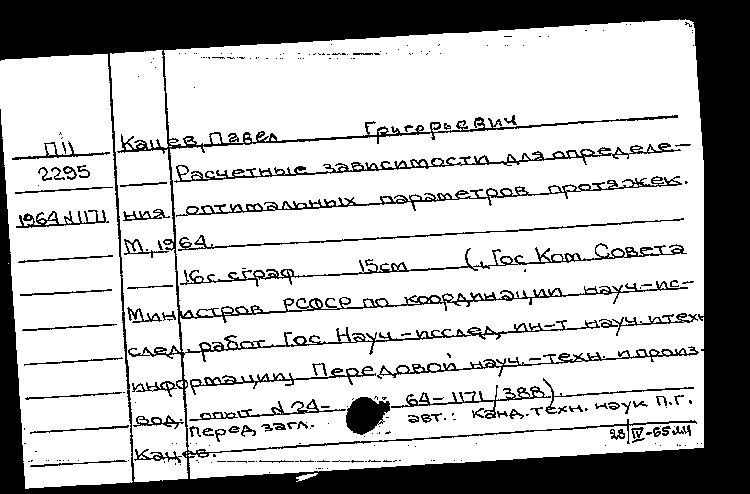 П11
2295
1964 N1171
Кацев, Павел Григорьевич
Расчетные зависимости для определе-
ния оптимальных параметров протяжек.
М., 1964.
16с. с граф. 15см (Гос. Ком. Совета
Министров РСФСР по координации науч.-ис-
след. работ. Гос. Науч.-исслед. ин-т науч. и техн.
информации, Передовой науч.-техн. и произ-
вод. опыт. N 24- 64-1171/388).
Перед загл. авт.: Канд. техн. наук П.Г.
Кацев.